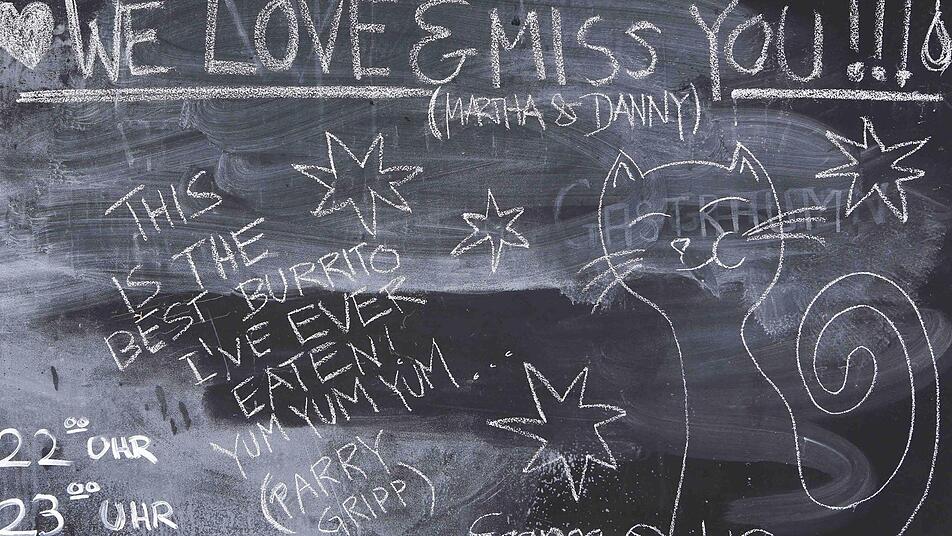 WE LOVE & MISS YOU!!!
(MARTHA & DANNY)
THIS
IS THE
BEST BURRITO
I'VE EVER
EATEN!
YUM YUM YUM...
(PARRY
GRIPP)
22⁰⁰ UHR
23⁰⁰ UHR